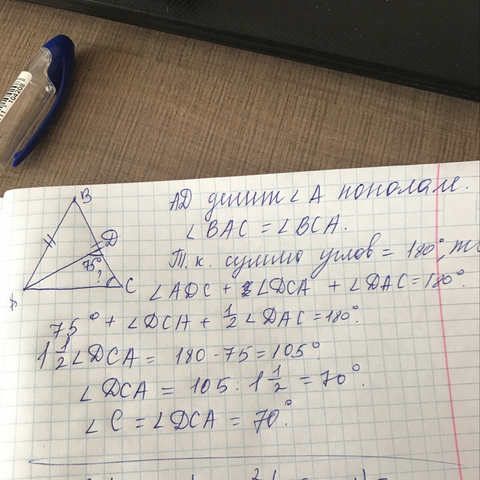 B
D
75°
?
A
C
AD делит ∠ А пополам.
∠ BAC = ∠ BCA.
Т.к. сумма углов = 180°, то
∠ ADC + ∠ DCA + ∠ DAC = 180°.
75° + ∠ DCA + 1/2 ∠ DAC = 180°.
1 1/2 ∠ DCA = 180 - 75 = 105°.
∠ DCA = 105 : 1 1/2 = 70°.
∠ C = ∠ DCA = 70°.